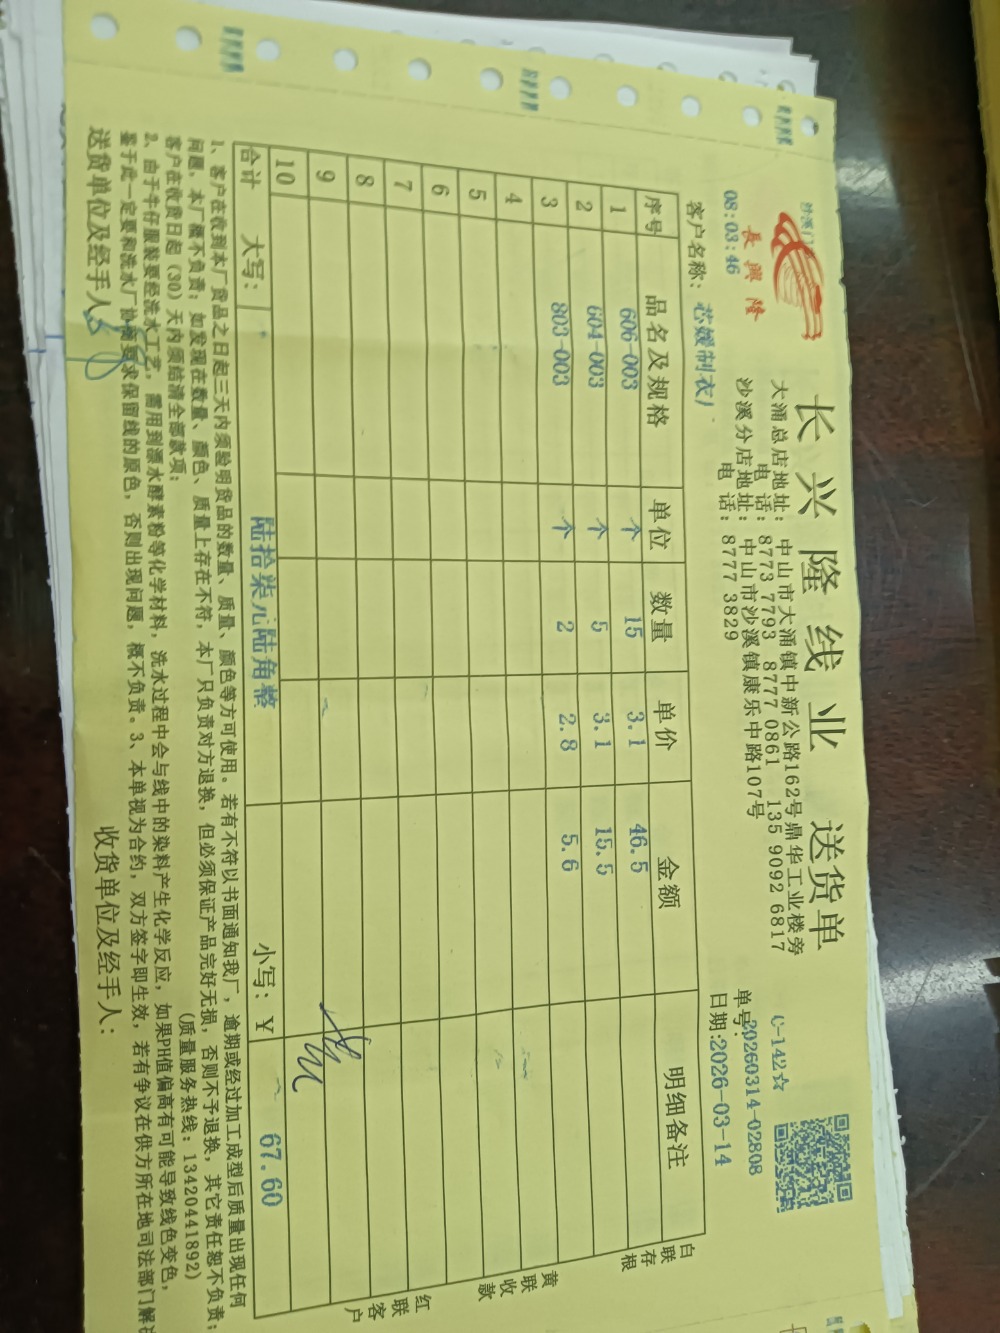 沙溪门
長興隆
08:03:46
长兴隆线业 送货单
大涌总店地址：中山市大涌镇中新公路162号鼎华工业楼旁
电 话：8773 7793 8777 0861 135 9092 6817
沙溪分店地址：中山市沙溪镇康乐中路107号
电 话：8777 3829
C-142☆
单号:20260314-02808
日期:2026-03-14
客户名称：芯嫒制衣厂
序号 品名及规格 单位 数量 单价 金额 明细备注
1 606-003 个 15 3.1 46.5
2 604-003 个 5 3.1 15.5
3 803-003 个 2 2.8 5.6
4
5
6
7
8
9
10
合计 大写： 陆拾柒元陆角整 小写：¥ 67.60
白联存根
黄联收款
红联客户
1、客户在收到本厂货品之日起三天内须验明货品的数量、质量、颜色等方可使用。若有不符以书面通知我厂，逾期或经过加工成型后质量出现任何
问题，本厂概不负责；如发现在数量、颜色、质量上存在不符，本厂只负责对方退换，但必须保证产品完好无损，否则不予退换，其它责任恕不负责；
客户在收货日起（30）天内须结清全部款项； (质量服务热线：13420441892)
2、由于牛仔服装要经洗水工艺，需用到漂水酵素粉等化学材料，洗水过程中会与线中的染料产生化学反应，如果PH值偏高有可能导致线色变色，
鉴于此一定要和洗水厂协商要求保留线的原色，否则出现问题，概不负责。3、本单视为合约，双方签字即生效，若有争议在供方所在地司法部门解
送货单位及经手人： 收货单位及经手人：